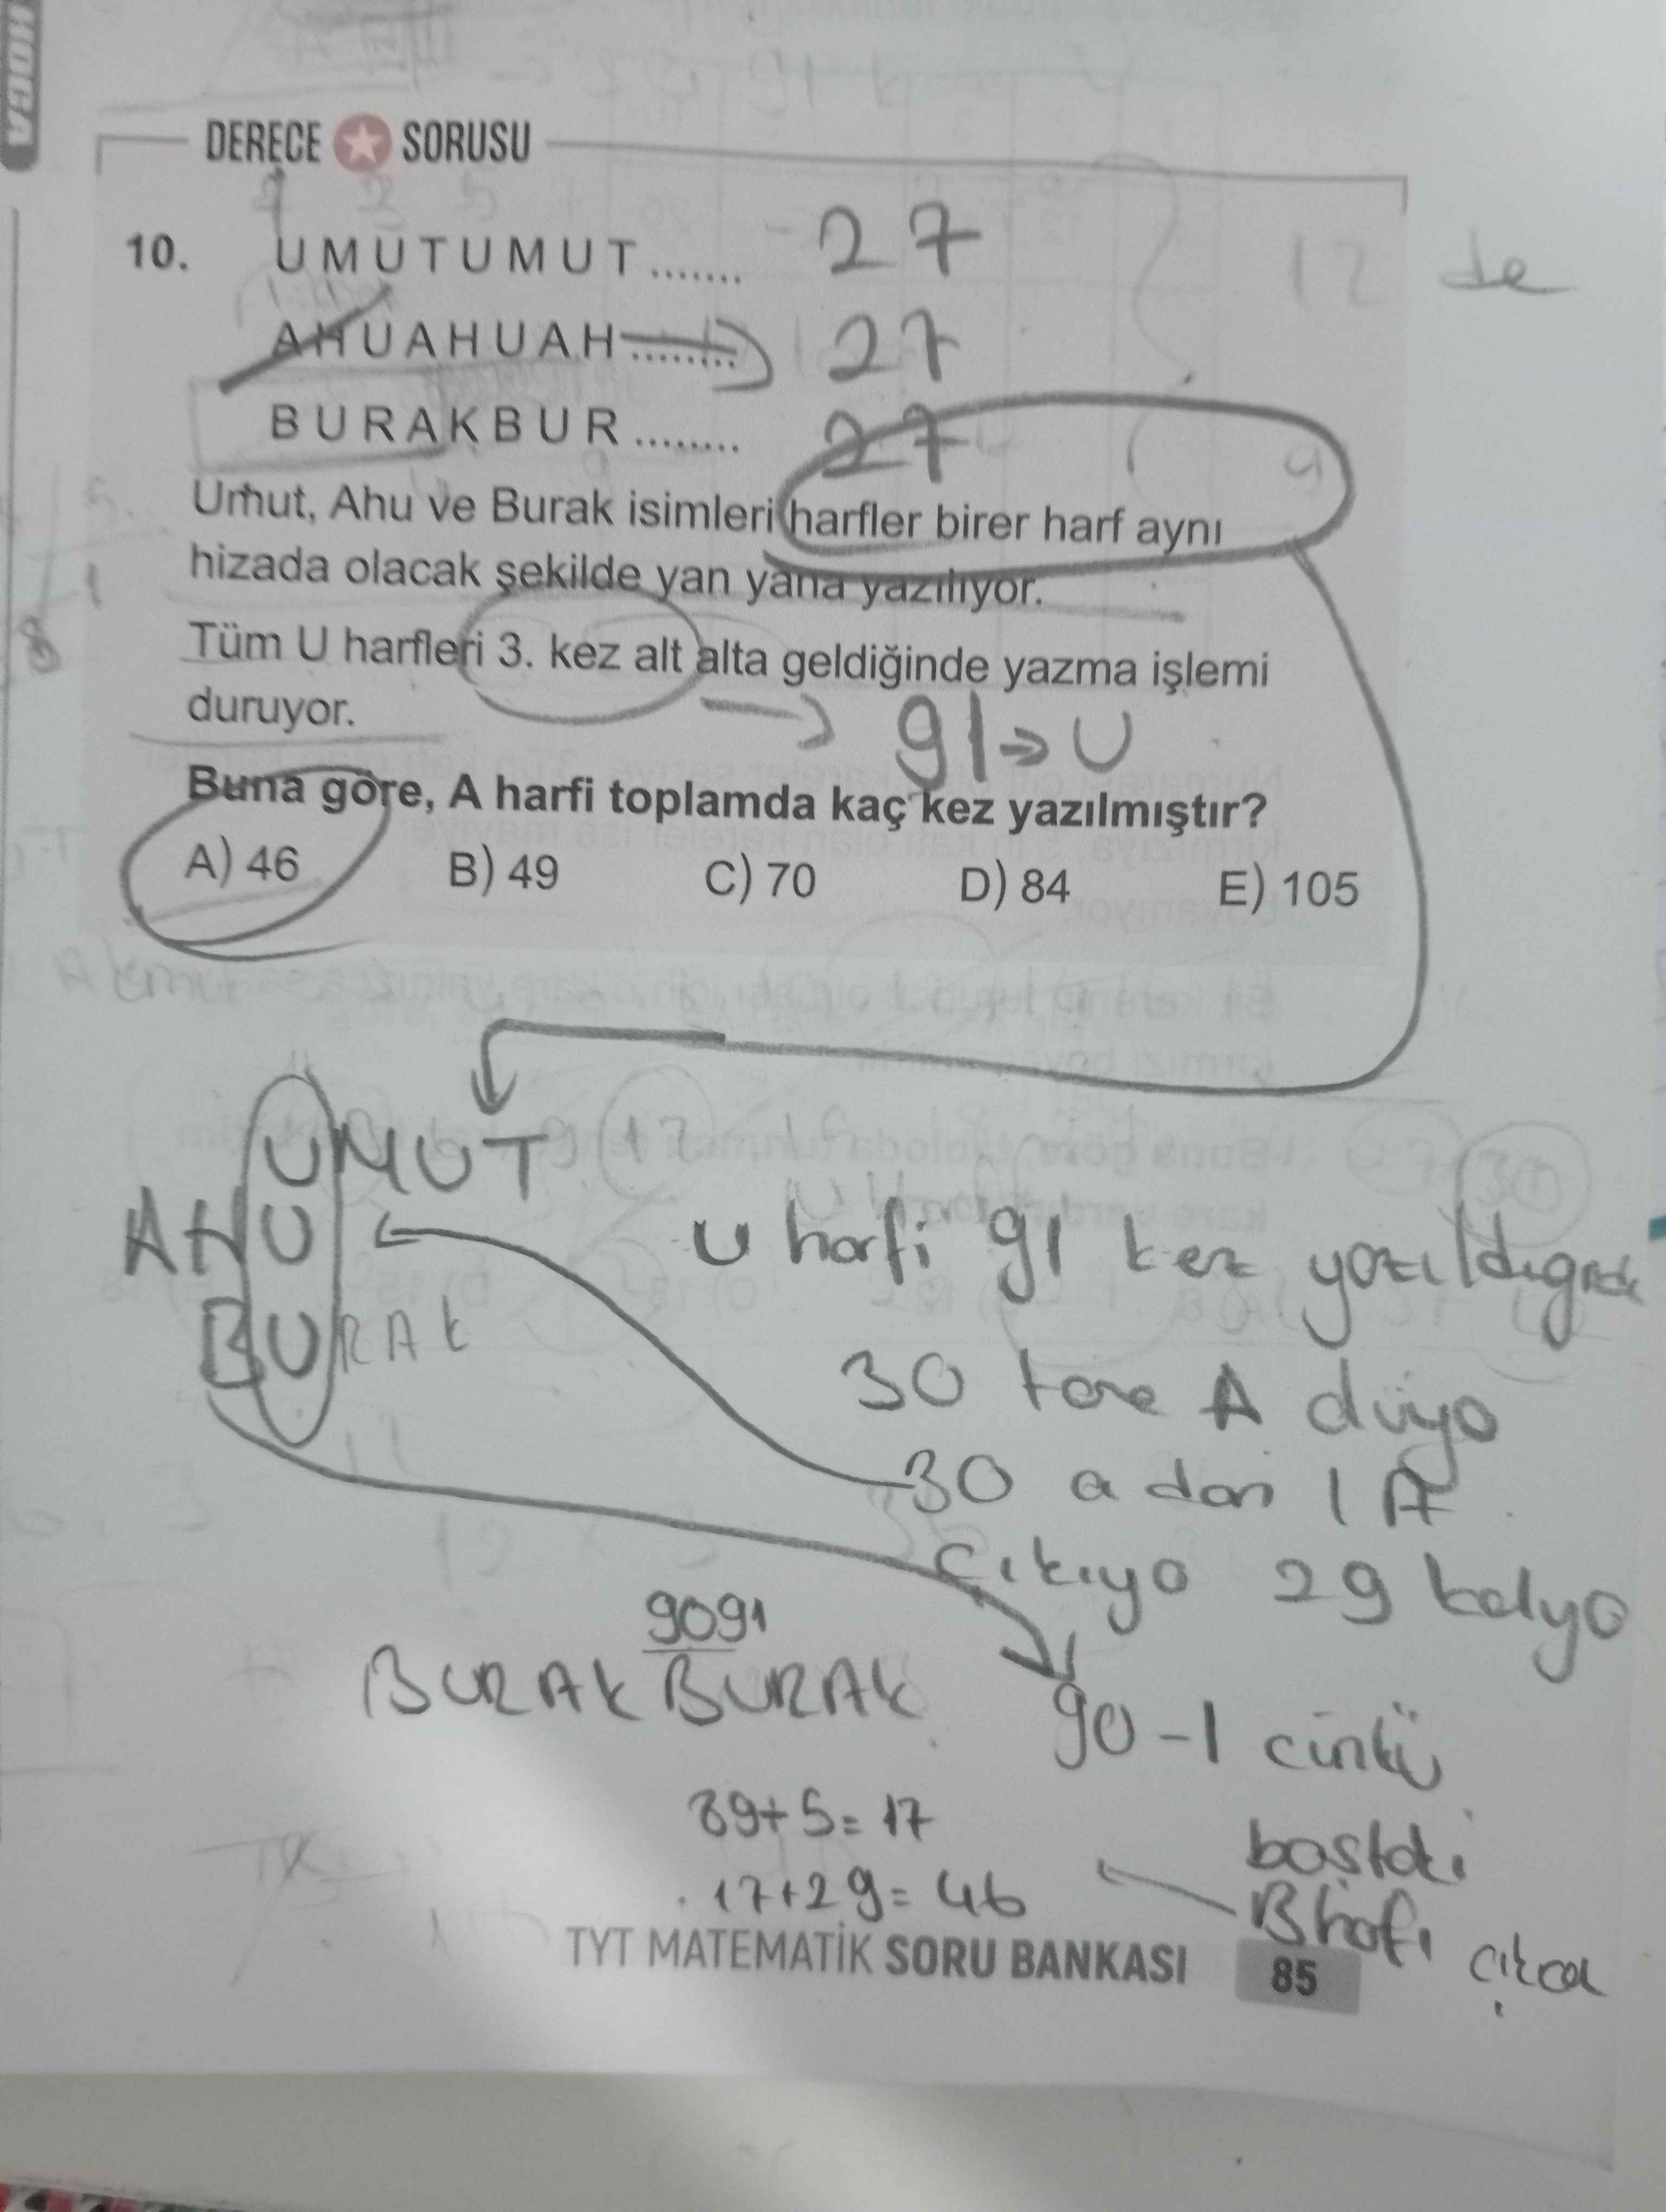 HOCA
DERECE SORUSU
10. UMUTUMUT....... 27
12 de
AHUAHUAH........ 27
BURAKBUR........ 27
Umut, Ahu ve Burak isimleri harfler birer harf aynı
hizada olacak şekilde yan yana yazılıyor.
Tüm U harfleri 3. kez alt alta geldiğinde yazma işlemi
duruyor.
91⇒U
Buna göre, A harfi toplamda kaç kez yazılmıştır?
A) 46 B) 49 C) 70 D) 84 E) 105
UMUT
AHU
BURAK
U harfi 91 kez yazıldığında
30 tane A düyo
30 a dan 1 A
çıkıyo 29 kalyo
9091
BURAKBURAK
90-1 cünkü
baştaki
B harfi çıkcak
89÷5=17
17+29=46
TYT MATEMATİK SORU BANKASI 85